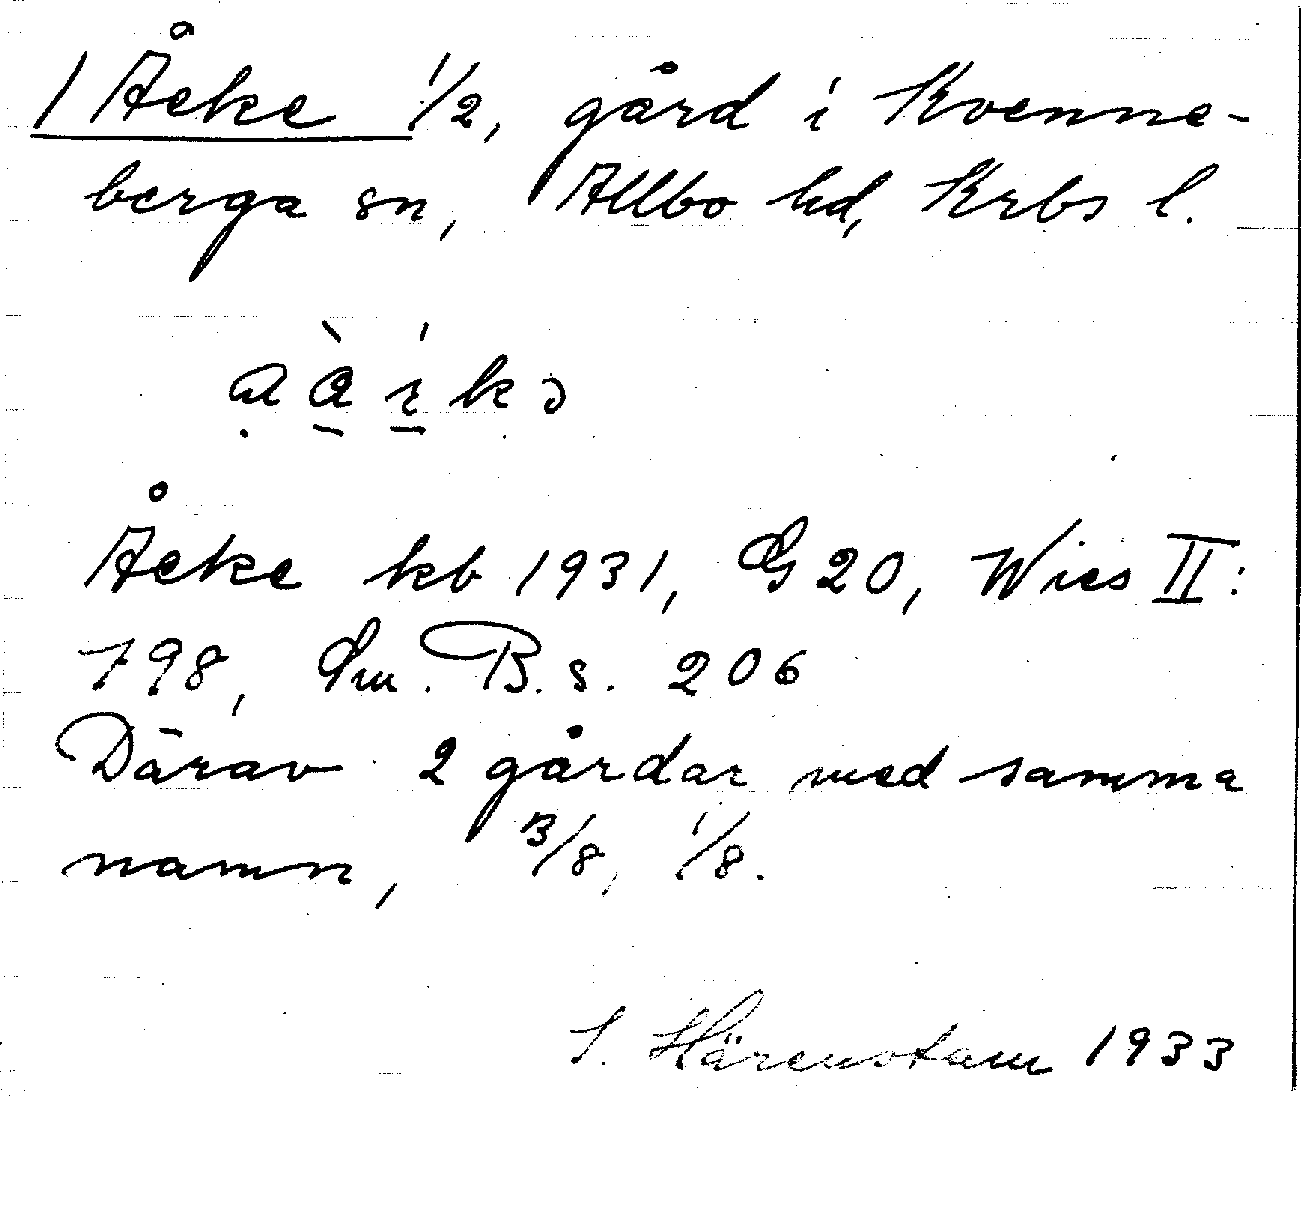 1 Åeke 1/2, gård i Kvenne-
berga sn, Allbo hd, Krbs l.
Åeke kb 1931, G 20, Wies II:
798, Sm. B. s. 206
Därav 2 gårdar med samma
namn, 3/8, 1/8.
S. Härenstam 1933